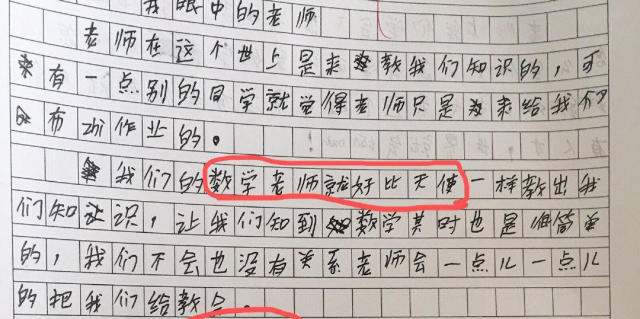 我眼中的老师
老师在这个世上是来教我们知识的，可
有一点别的同学就觉得老师只是来给我们
布zhi作业的。
我们的数学老师就好比天使一样教出我
们知识，让我们知到数学其时也是很简单
的，我们不会也没有关系老师会一点儿一点儿
的把我们给教会。